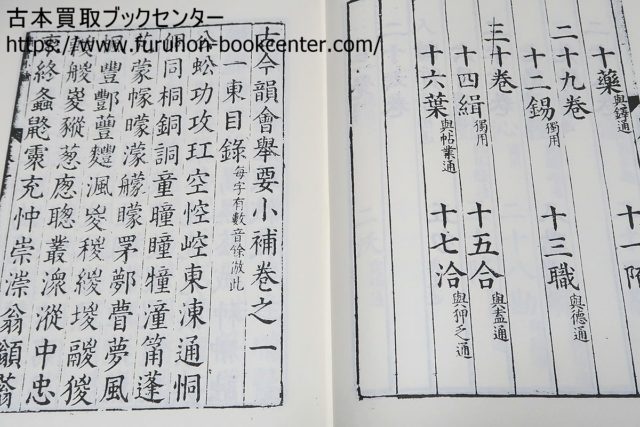 古本買取ブックセンター
https://www.furuhon-bookcenter.com/
十藥與鐸通 十一陌
二十九卷
十二錫獨用 十三職與德通
三十卷
十四緝獨用 十五合與盍通
十六葉與帖業通 十七洽與狎乏通
古今韻會舉要小補卷之一
一東目錄每字有數音餘倣此
公蚣功攻玒空悾崆東涷通恫
侗同桐銅詷童曈瞳犝潼筩蓬
蒙幪曚濛艨矇罞夢瞢夢風
楓豐酆蘴麷渢緵堫鬷猣
艐嵏豵葱聰叢潀漎中忠
衷終螽充忡崇漴翁